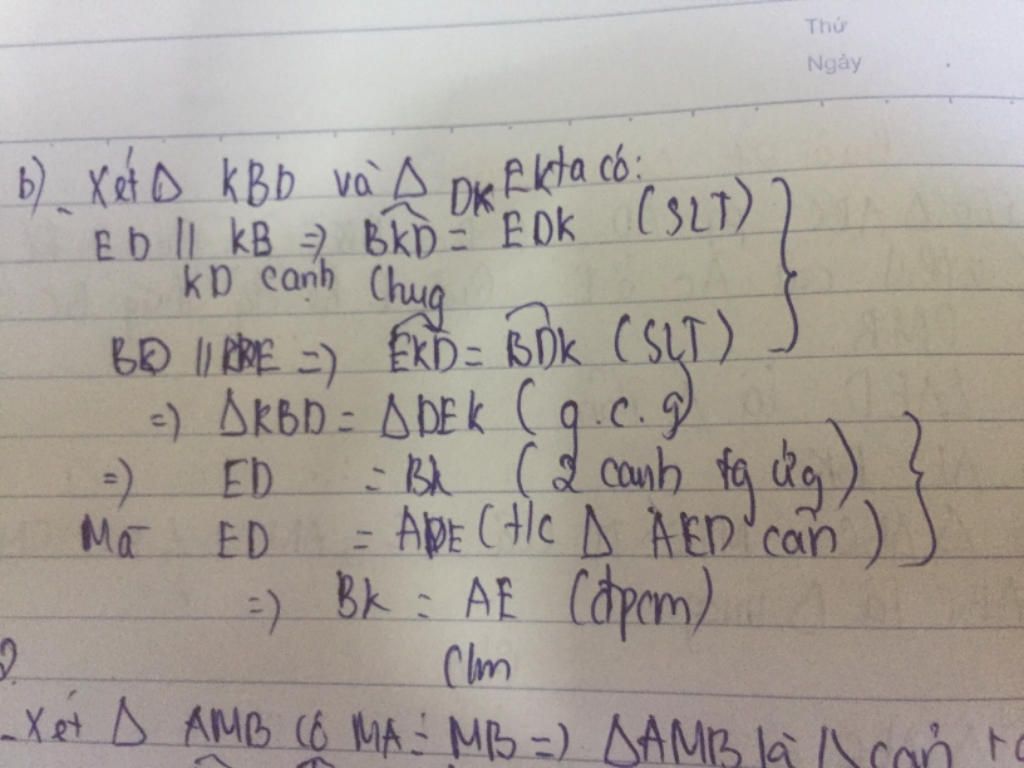 Thứ
Ngày
b) - Xét Δ KBD và Δ DKEK ta có:
ED // KB => BKD = EDK (SLT)
KD cạnh chug
BD // KE => EKD = BDK (SLT)
=> ΔKBD = ΔDEK (g.c.g)
=> ED = BK (2 cạnh tg ứg)
Mà ED = AE (t/c Δ AED cân)
=> BK = AE (đpcm)
Clm
- Xét Δ AMB có MA = MB => ΔAMB là Δ cân